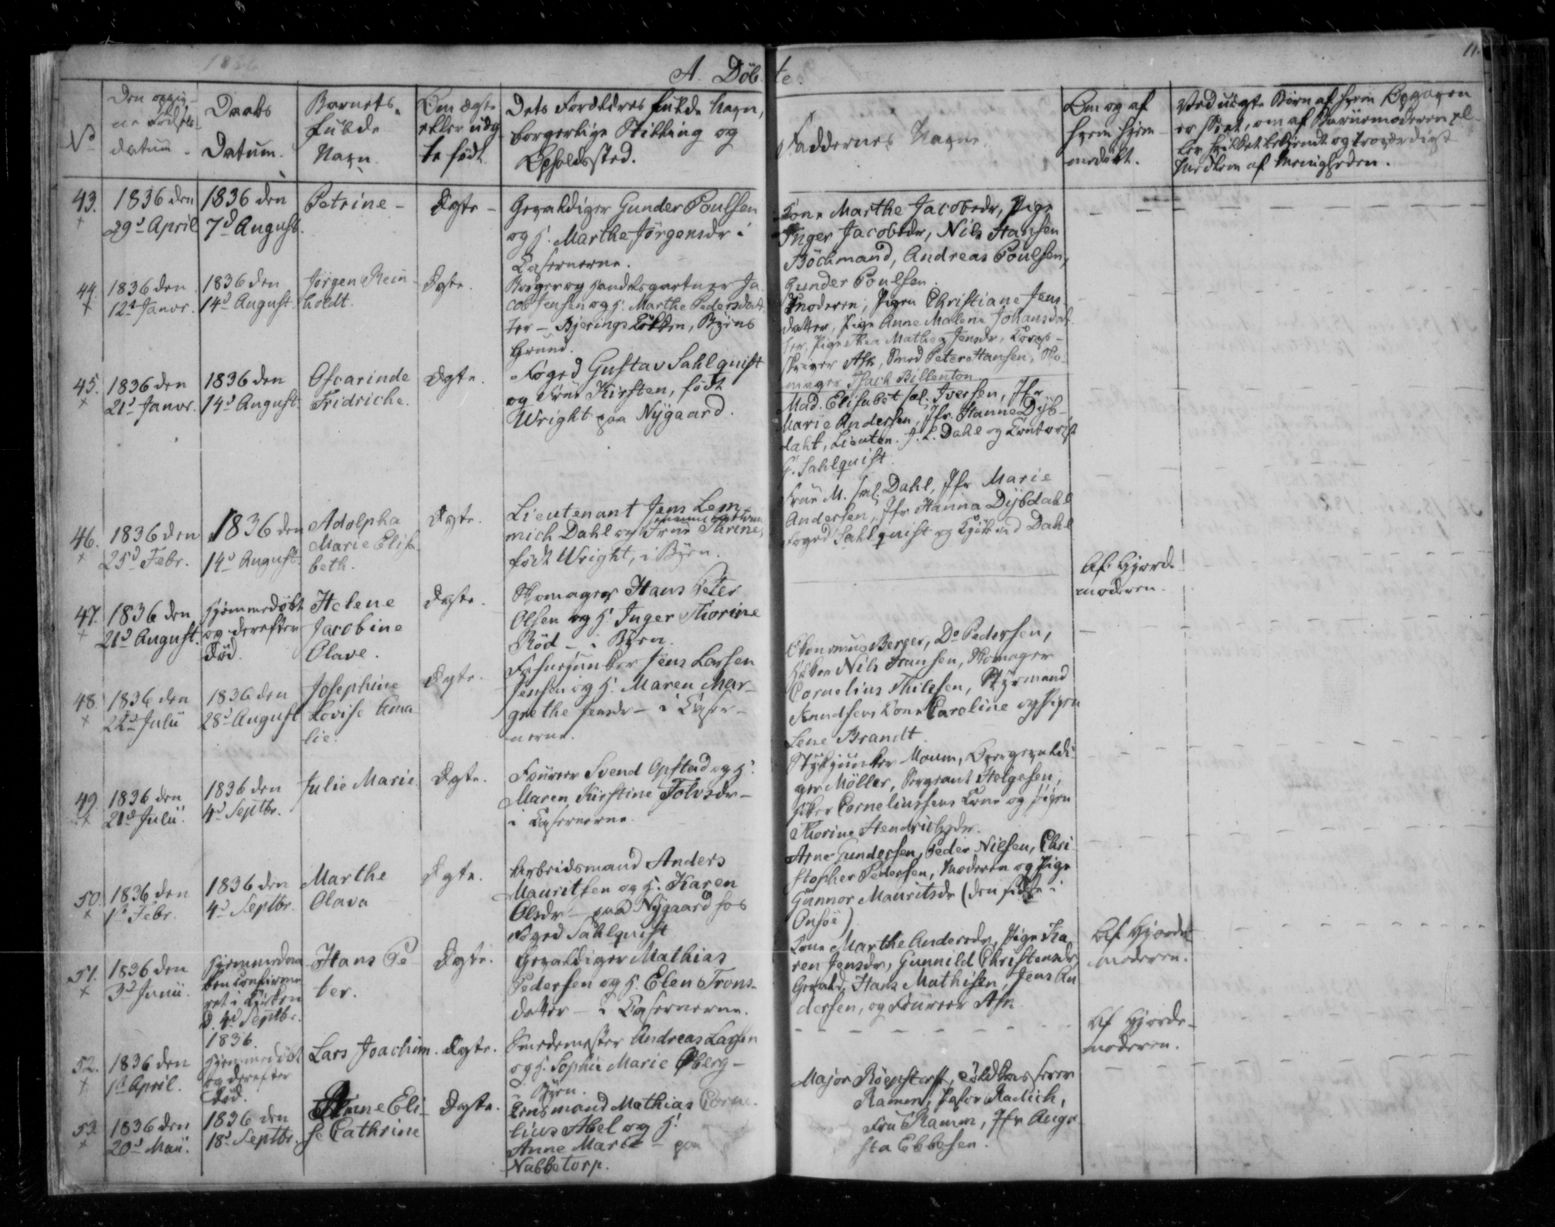 1836
11.
A. Døbte.
No
Den opgiv-
ne Fødsels
datum.
Daabs
Datum.
Barnets
fulde
Navn.
Om ægte
eller uæg
te født
Dets Forældres fulde Navn,
borgerlige Stilling og
Opholdssted.
Faddernes Navne.
Om og af
hvem hjem
medøbt.
Ved uægte Børn af hvem Opgaven
er skeet, om af Barnemoderen el-
ler hvilket bekjendt og troværdigt
Medlem af Menigheden.
43.
1836 den
29d April
1836 den
7d August.
Petrine -
Ægte -
Gevaldiger Gunder Poulsen
og H. Marthe Jörgensdr i
Casernerne.
Kone Marthe Jacobsdr, Pige
Inger Jacobsdr, Nils Hansen
Böckmand, Andreas Poulsen,
Gunder Poulsen.
44
1836 den
12d Janvr.
1836 den
14d August.
Jörgen Rein
holdt.
Ægte.
Borger og Handelsgartner Ja
cob Jensen og H. Marthe Pedersdat
ter - Bjerings Løkken, Byens
Grund.
Moderen, Pigen Christiane Jens
datter, Pige Anne Mallene Johansdat
ter, Pige Thea Mathea Jensdr,
skriver Ask, Smed Peter Hansen, Sko
mager Isach Billenton
45.
1836 den
21d Janvr.
1836 den
14d August.
Oscarinde
Fridriche.
Ægte.
Foged Gustav Sahlquist
og Frue Kirsten, født
Wright paa Nygaard.
Mad. Elisabet sal. Iversen, Jfr
Marie Andersen, Jfr. Hanne Dyb-
dahl, Lieuten. J. L. Dahl og Contorist
G. Sahlquist.
46.
1836 den
25d Febr.
1836 den
14d August.
Adolpha
Marie Elisa
beth.
Ægte.
Lieutenant Jens Lem
mich Dahl og Frue Thrine,
født Wright, i Byen.
Frue M. sal. Dahl, Jfr Marie
Andersen, Jfr Hanna Dybdahl
Foged Sahlquist og Dahl
47.
1836 den
21d August.
Hjemmedøbt
og derefter
død.
Helene
Jacobine
Olave.
Ægte.
Skomager Hans Peter
Olsen og H. Inger Thorine
Röd - i Byen.
Af Gjorde
moderen.
48
1836 den
22d Julii
1836 den
28d August
Josephine
Lovise Ama
lie.
Ægte.
Fahnejunker Jens Larsen
Jensen og H. Maren Mar-
grethe Jensdr - i Caser-
nerne.
Oeconomus Berger, Do Pedersen,
Nils Hansen, Skomager
Cornelius Thilesen, Styrmand
Knudsens Kone Caroline og Pigen
Lene Brandt.
49
1836 den
21d Julii.
1836 den
4d Septbr.
Julie Marie
Ægte.
Fourer Svend Opstad og H.
Maren Kirstine Tolvsdr -
i Casernerne.
Stykjunker Moum, Overgevaldi
ger Möller, Sergeant Helgesen,
Corneliussens Kone og Pigen
Thorine Hendrichsdr.
50.
1836 den
1d Febr.
1836 den
4d Septbr.
Marthe
Olava
Ægte.
Arbeidsmand Anders
Mauritsen og H. Karen
Olsdr - paa Nygaard hos
Foged Sahlquist
Arne Gundersen, Peder Nilsen, Chri
stopher Pedersen, Moderen og Pige
Gunnor Mauritsdr (den sidste i
Onsöe)
51.
1836 den
3d Junii.
Hjemmedaa
ben confirme
ret i Kirken
d. 4d Septbr.
1836.
Hans Pe
ter.
Ægte.
Gevaldiger Mathias
Pedersen og H. Elen Trons-
datter - i Casernerne.
Kone Marthe Andersdr, Pige Ka
ren Jensdr, Gunnild Christensdr
Gevald. Hans Mathisen, Jens An
dersen, og Fourer Ask
Af Gjorde
moderen.
52.
1836 den
1d April.
Hjemmedøbt
og derefter
død.
Lars Joachim.
Ægte.
Smedemester Andreas Larsen
og H. Sophie Marie Öberg -
i Byen.
Af Gjorde-
moderen.
53
1836 den
20d Maii.
1836 den
18d Septbr.
Anne Eli-
se Cathrine
Ægte.
Lensmand Mathias Corne
lius Abel og H.
Anne Marie - paa
Nabbetorp.
Major Röepstorff,
Ramm, Pastor Radich,
Frue Ramm, Jfr Augu
sta Ebbesen.